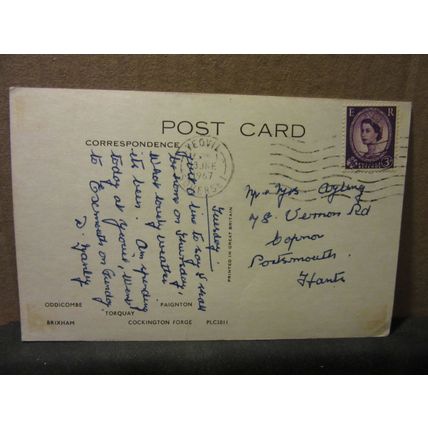 POST CARD
CORRESPONDENCE
YEOVIL
JNE
1967
SOMERSET
E R
3D
Tuesday
Just a line to say I shall
be home on Thursday,
What lovely weather
its been. Am spending
today at Yeovil, went
to Exmouth on Sunday
D.
Mr & Mrs. Ayling
78. Vernon Rd
Copnor
Portsmouth.
Hants
PRINTED IN GREAT BRITAIN
ODDICOMBE PAIGNTON
TORQUAY
BRIXHAM COCKINGTON FORGE PLC3811